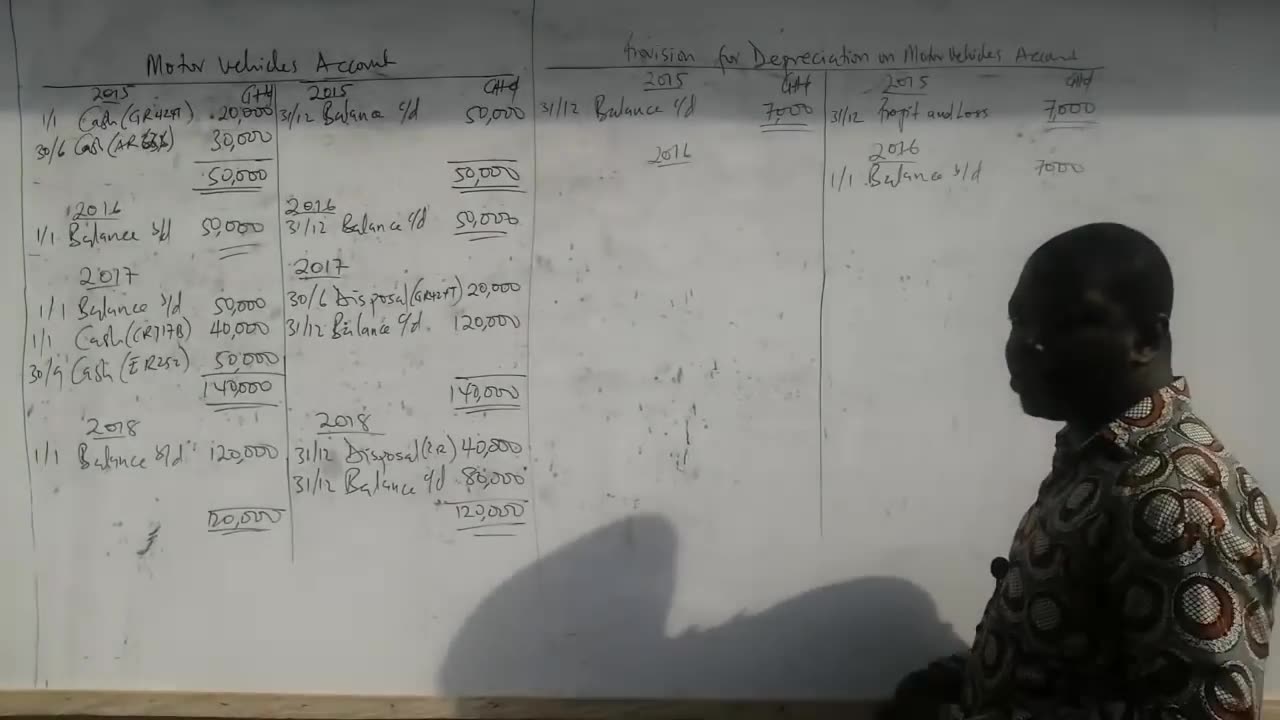 Motor Vehicles Account
2015 GH¢ 2015 GH¢
1/1 Cash (GR424T) 20,000 31/12 Balance c/d 50,000
30/6 Cash (AR 30,000
50,000 50,000
2016 2016
1/1 Balance b/d 50,000 31/12 Balance c/d 50,000
2017 2017
1/1 Balance b/d 50,000 30/6 Disposal (GR424T) 20,000
1/1 Cash (CR717B) 40,000 31/12 Balance c/d 120,000
30/9 Cash (ER252) 50,000
140,000 140,000
2018 2018
1/1 Balance b/d 120,000 31/12 Disposal 40,000
31/12 Balance c/d 80,000
120,000 120,000
Provision for Depreciation on Motor Vehicles Account
2015 GH¢ 2015 GH¢
31/12 Balance c/d 7,000 31/12 Profit and Loss 7,000
2016 2016
1/1 Balance b/d 7000